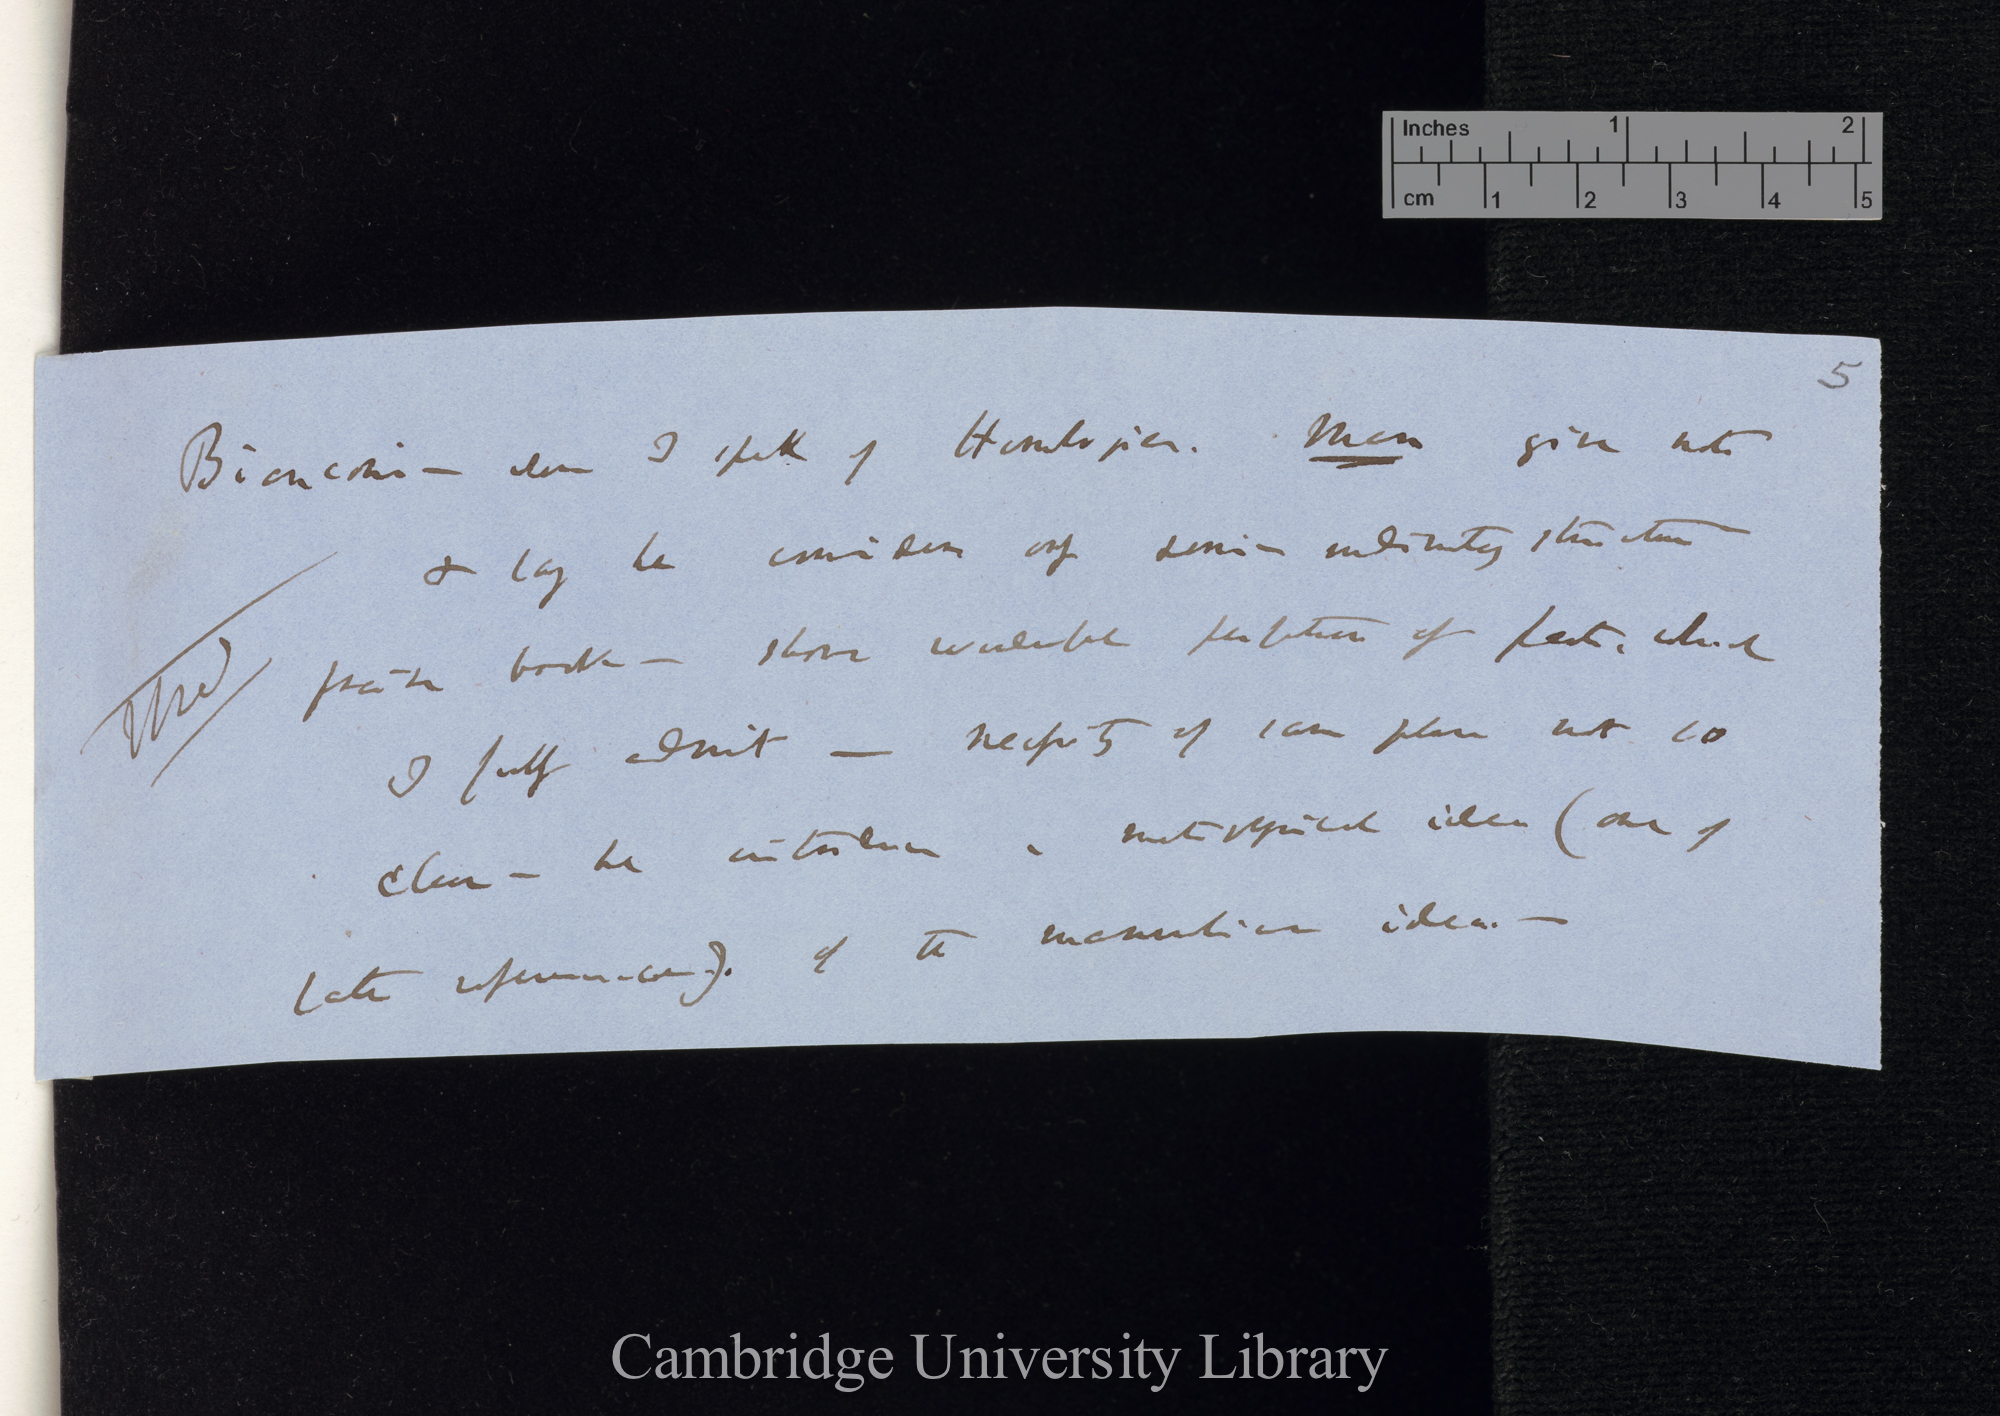 Inches 1 2
cm 1 2 3 4 5
5
Bianconi — when I speak of Homologies. Man give note
& say he considers only some rudimentary structures
praise book — shows wonderful perfection of parts, which
Used
I fully admit — necessity of same plan not so
clear — he introduces a metaphysical idea (one of
late references). of the idea. —
Cambridge University Library